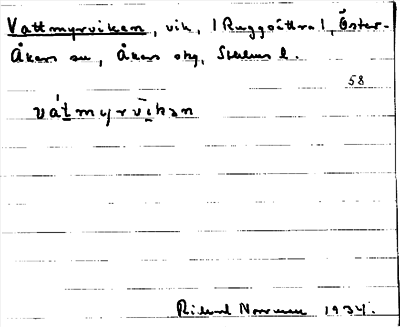 Vattmyrviken, vik, |Ruggsättra|, Öster-
Åkers sn, Åkers skg, Sthlms l.
58
vát myrvīkən
Rickard Norrman 1934.